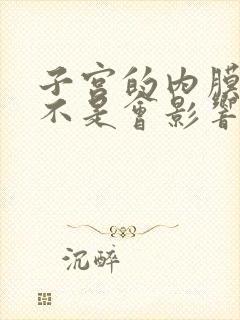 子宫的内膜
不是會影響
沉醉